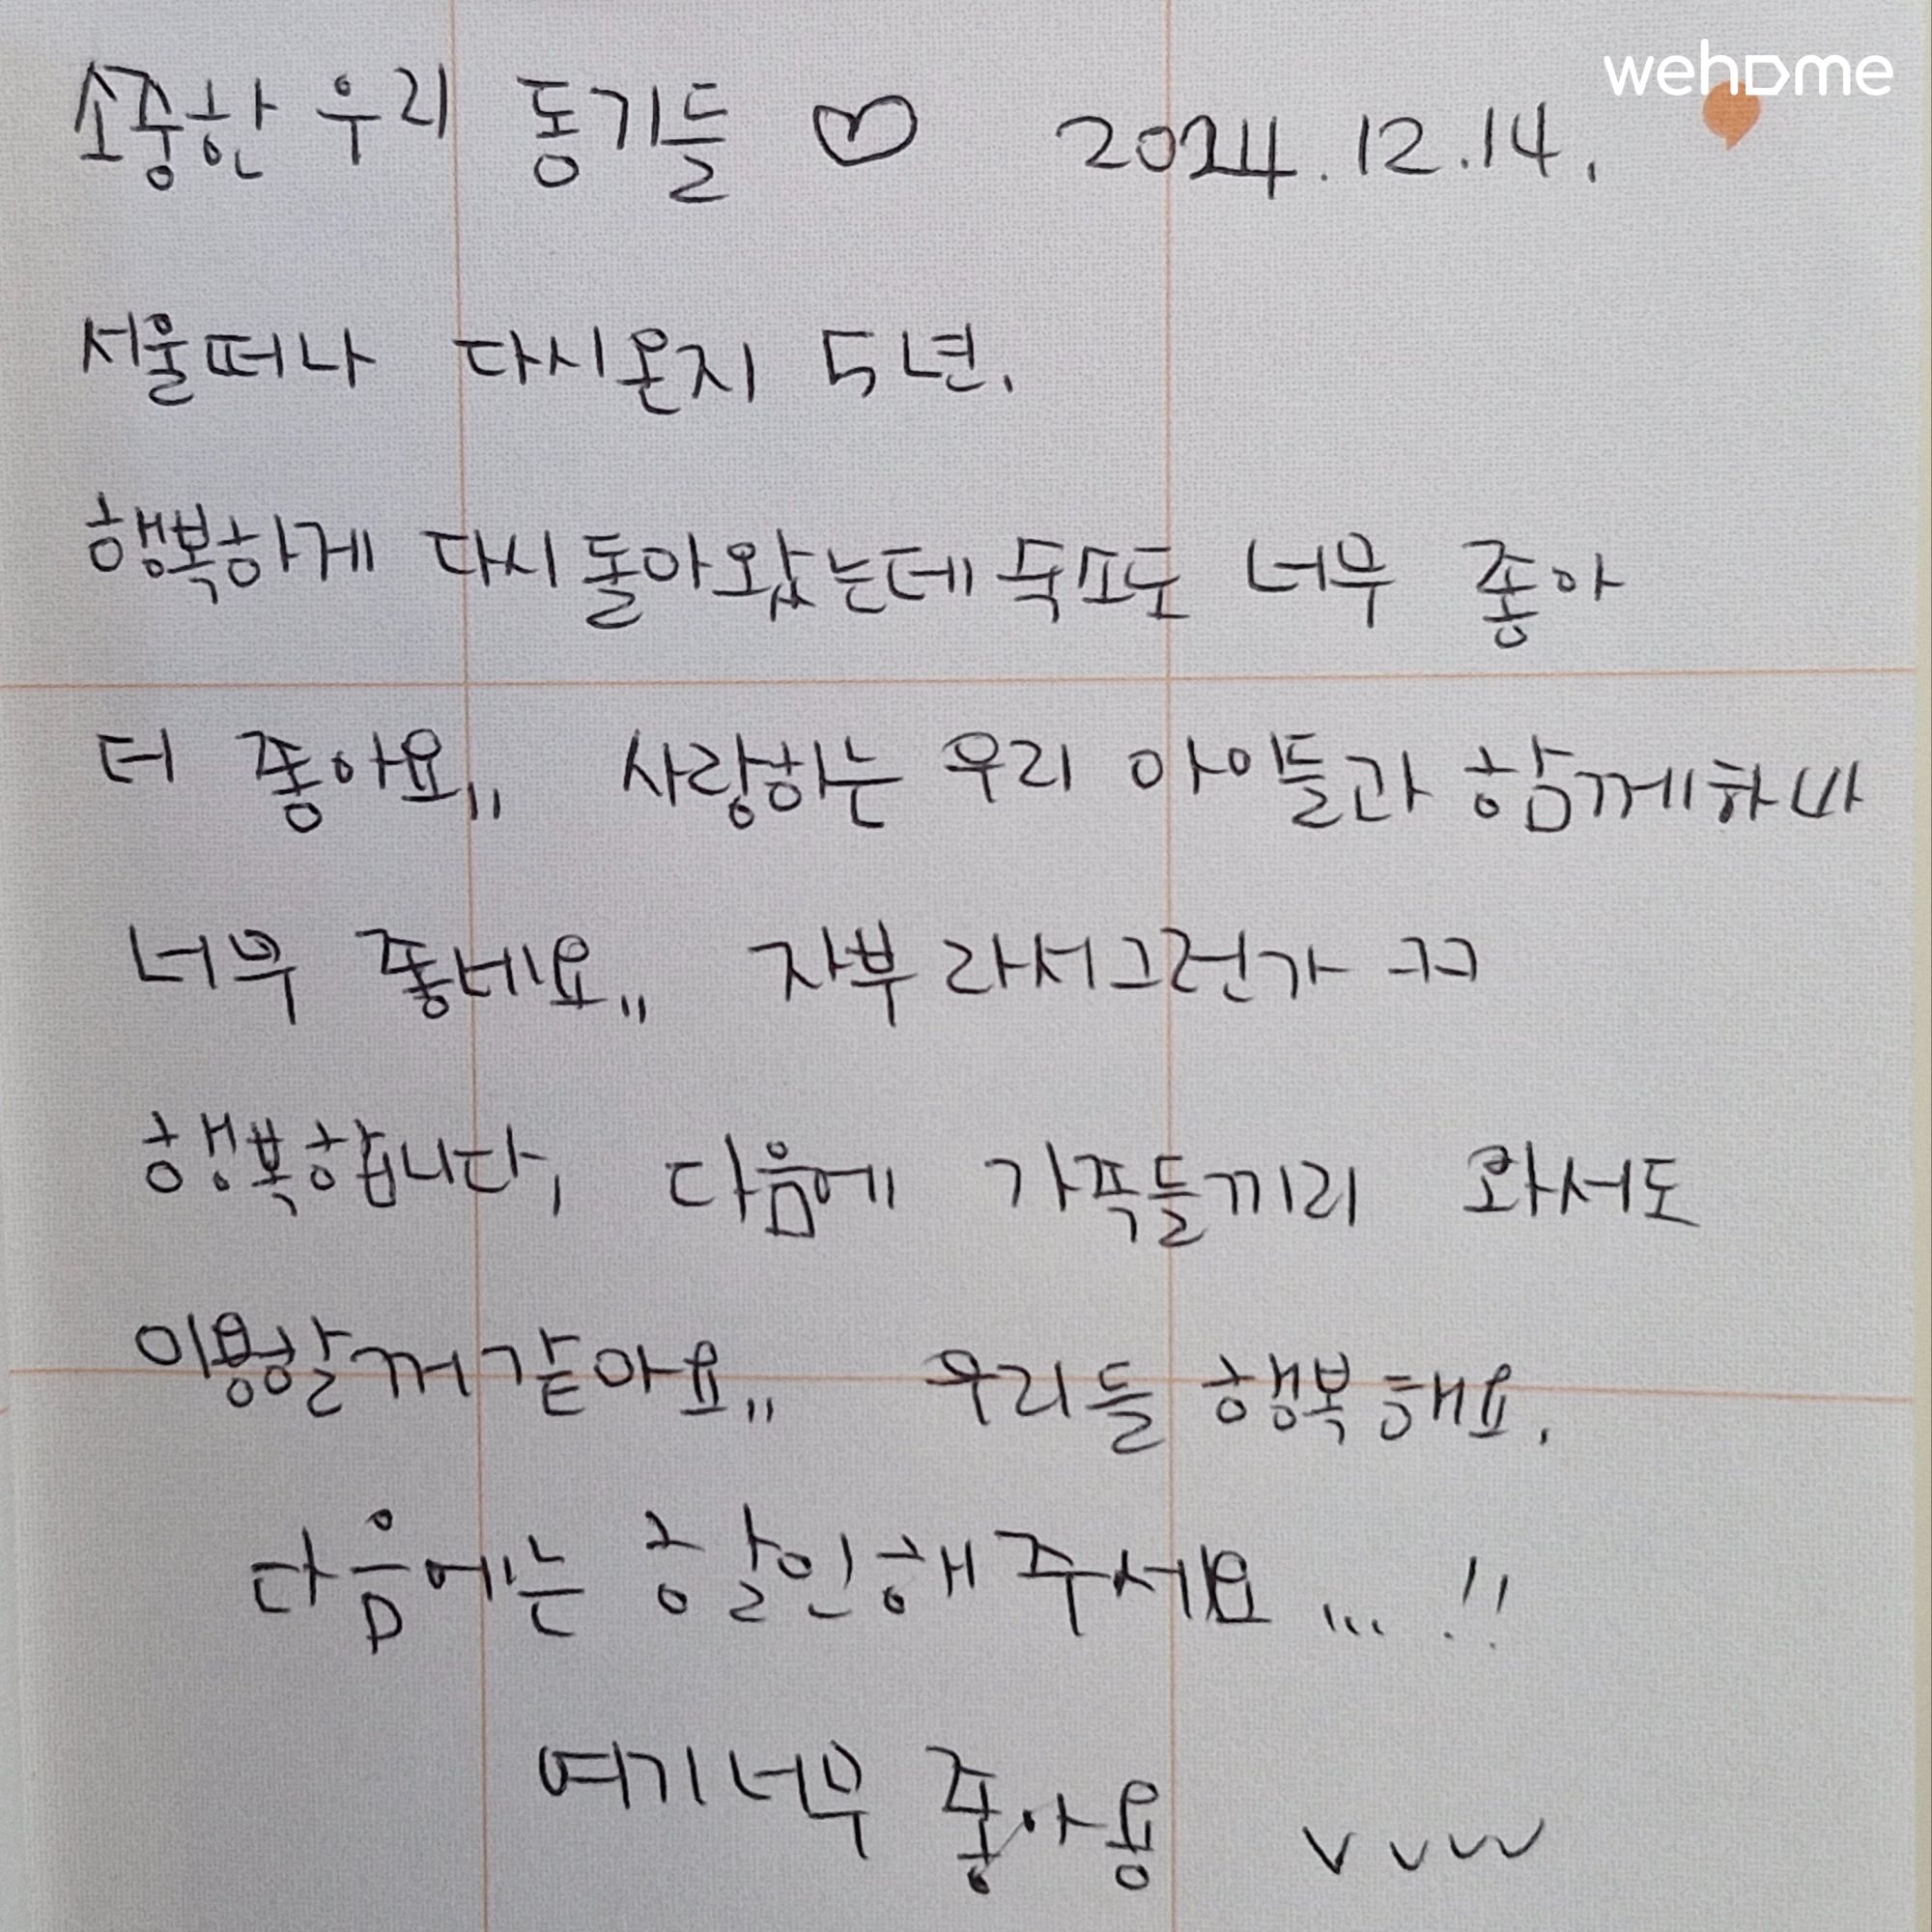 wehome
소중한 우리 동기들 ♡ 2024.12.14.
서울떠나 다시온지 5년.
행복하게 다시돌아왔는데 숙소도 너무 좋아
더 좋아요,, 사랑하는 우리 아이들과 함께하니
너무 좋네요,, 자부라서그런가 ㅋㅋ
행복합니다, 다음에 가족들끼리 와서도
이용할꺼같아요,, 우리들 행복해요.
다음에는 할인해주세요...!!
여기너무 좋아용 vvvv